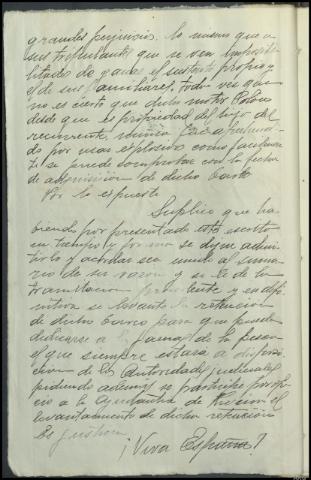 grandes perjuicios, lo mismo que a
sus tripulantes que se ven imposibi-
litados de ganar el sustento propio y
el de sus familiares, toda vez que
no es cierto que dicho motor
desde que es propiedad del hijo del
recurrente, 
do por usar explosivo como facilmen-
te se puede comprobar con la fecha
de adquisición de dicho barco
Por lo expuesto
Suplico que ha-
biendo por presentado este escrito
en tiempo y forma se digne admi-
tirlo y acordar sea unido al suma-
rio de su razon y se le de la
tramitacion y en defi-
nitiva se levante la retencion
de dicho barco para que pueda
dedicarse a la faena de la pesca
el que siempre estara a disposi-
cion de las Autoridades judiciales
pidiendo ademas se participe por ofi-
cio a la Ayudantia de Marina el
levantamiento de dicha retención
Es justicia
¡Viva España!